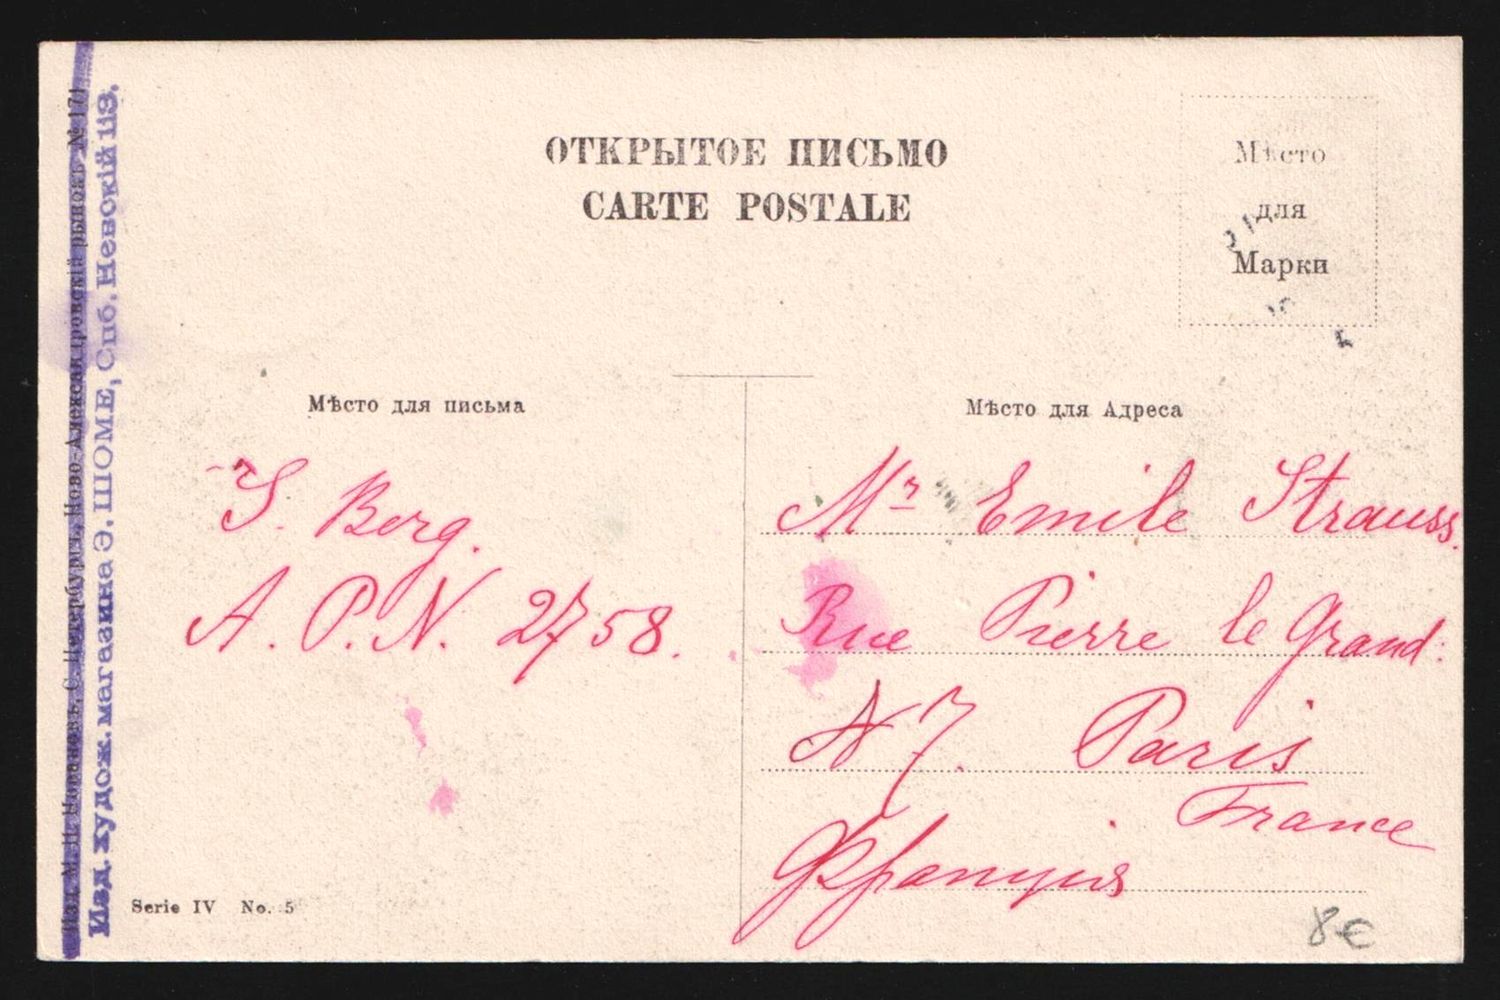 ОТКРЫТОЕ ПИСЬМО
CARTE POSTALE
Мѣсто
для
Марки
Мѣсто для письма
Мѣсто для Адреса
S. Berg.
A. P. N. 2758.
Mr Emile Strauss.
Rue Pierre le Grand.
N 7. Paris
France
Франция
Serie IV No. 5
8€
Ново-Александровскій рынокъ № 171
Изд. худож. магазина Э. ШОМЕ, Спб. Невскій 113.